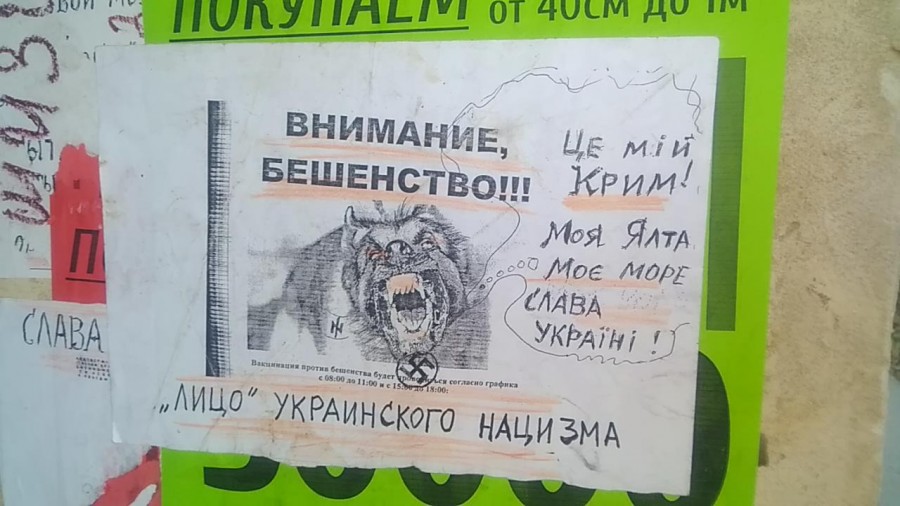 ПОКУПАЕМ от 40см до 1м
ВНИМАНИЕ,
БЕШЕНСТВО!!!
ЦЕ МІЙ
КРИМ!
МОЯ ЯЛТА
МОЄ МОРЕ
СЛАВА
УКРАЇНІ!
Вакцинация против бешенства будет проводиться согласно графика
с 08:00 до 11:00 и с 15:00 до 18:00:
„ЛИЦО“ УКРАИНСКОГО НАЦИЗМА
СЛАВА